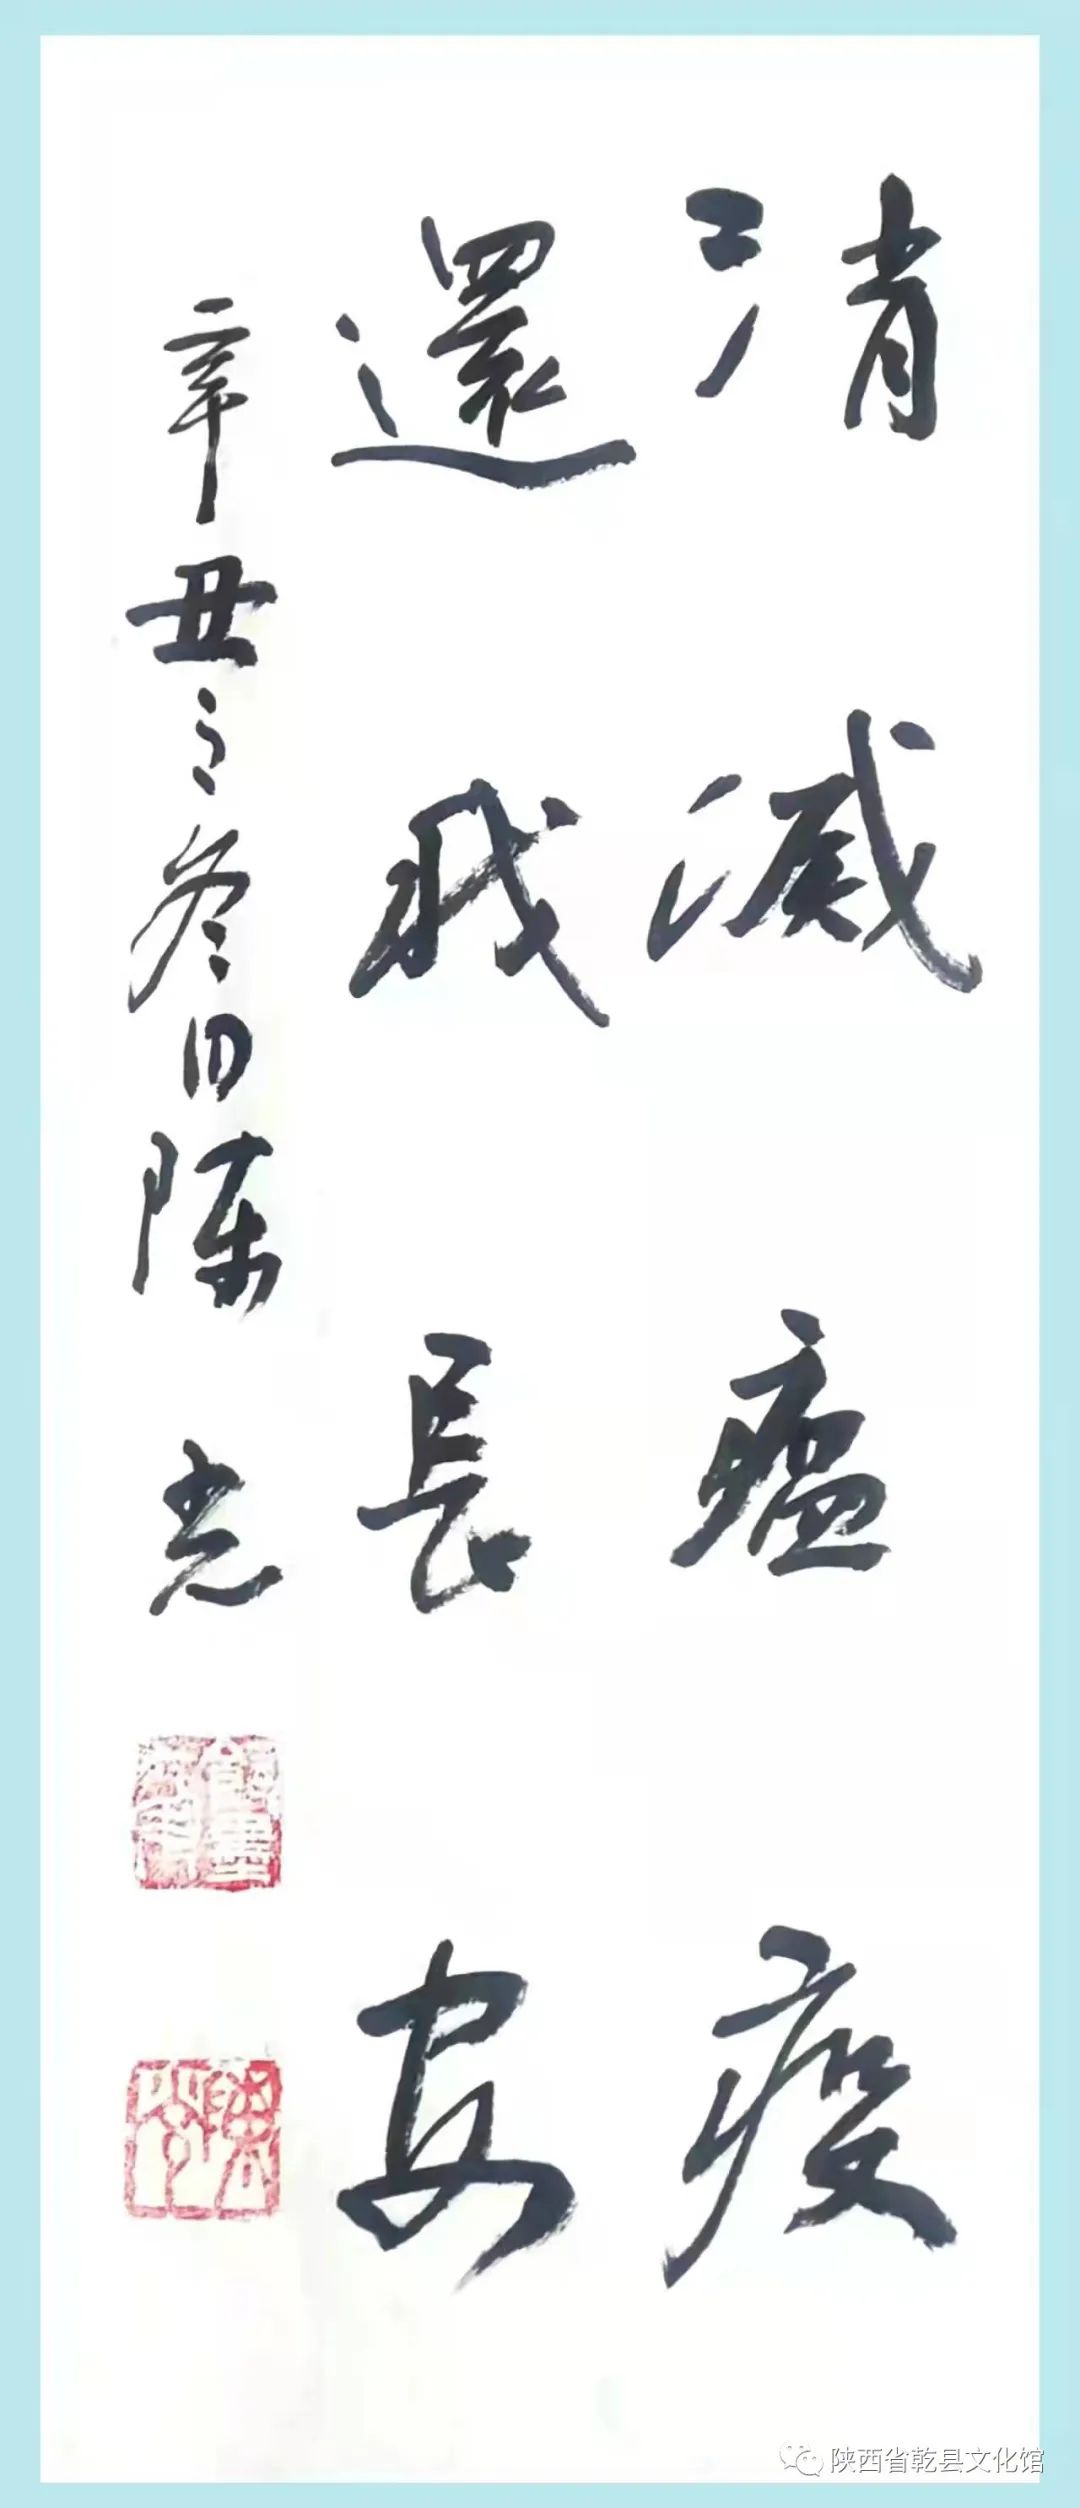 消滅瘟疫
還我長安
辛丑之冬日陳光
陕西省乾县文化馆